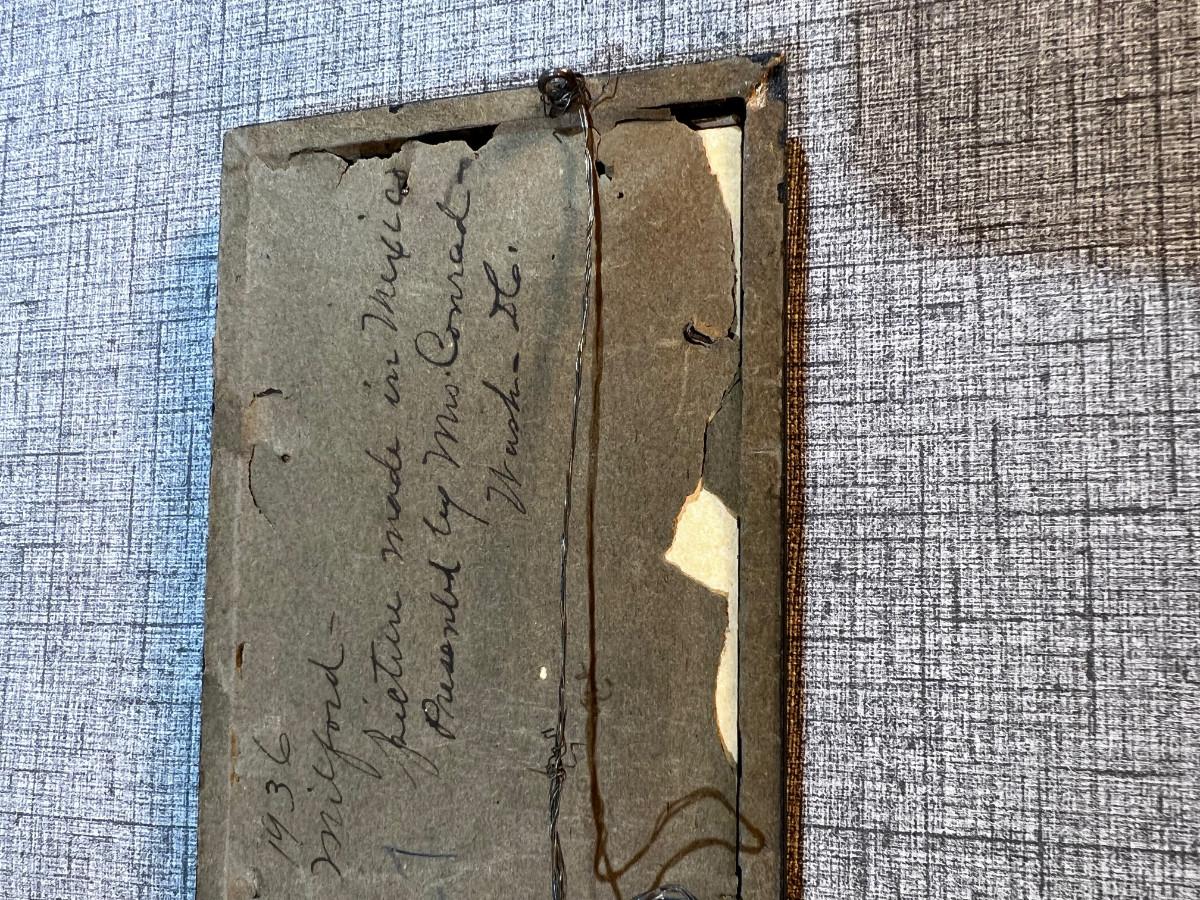 1936
Milford -
picture made in Mexico
Presented by Mrs. Conrad -
Wash - D.C.